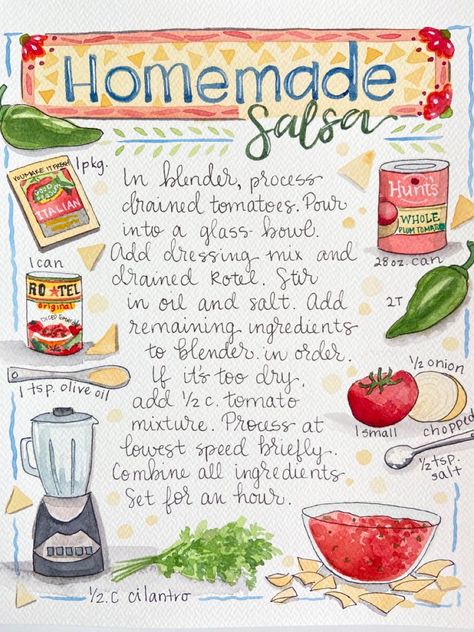 Homemade
Salsa
1 pkg.
YOU MAKE IT FRESH!
GOOD
SEASONS
ITALIAN
In blender, process
drained tomatoes. Pour
into a glass bowl.
Add dressing mix and
drained Rotel. Stir
in oil and salt. Add
remaining ingredients
to blender in order.
If it's too dry,
add 1/2 c. tomato
mixture. Process at
lowest speed briefly.
Combine all ingredients
Set for an hour.
Hunt's
WHOLE
PLUM TOMATO
28 oz. can
1 can
RO★TEL
original
DICED
2T
1 tsp. olive oil
1/2 onion
chopped
1 small
1/2 tsp.
salt
1/2 c cilantro